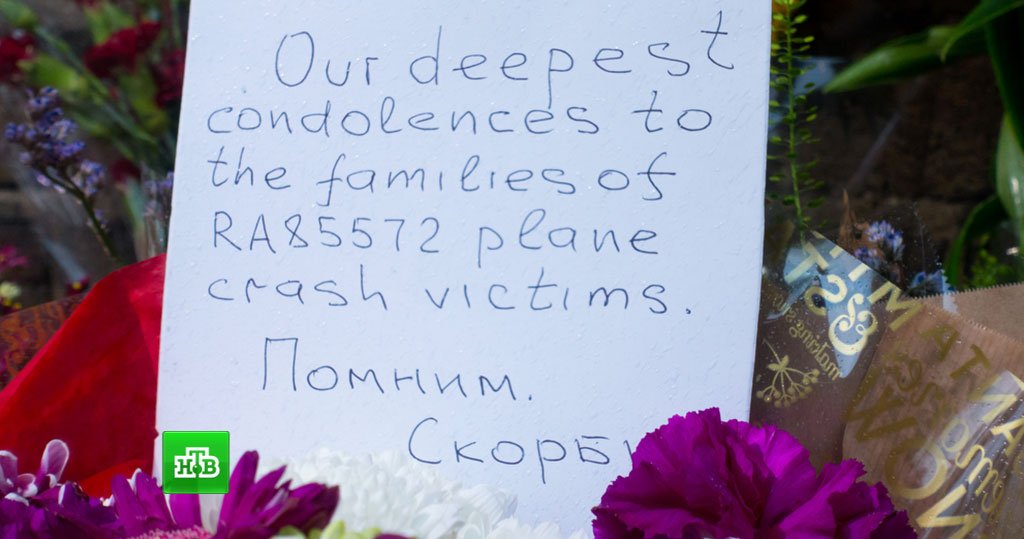 Our deepest
condolences to
the families of
RA85572 plane
crash victims.
Помним.
НТВ